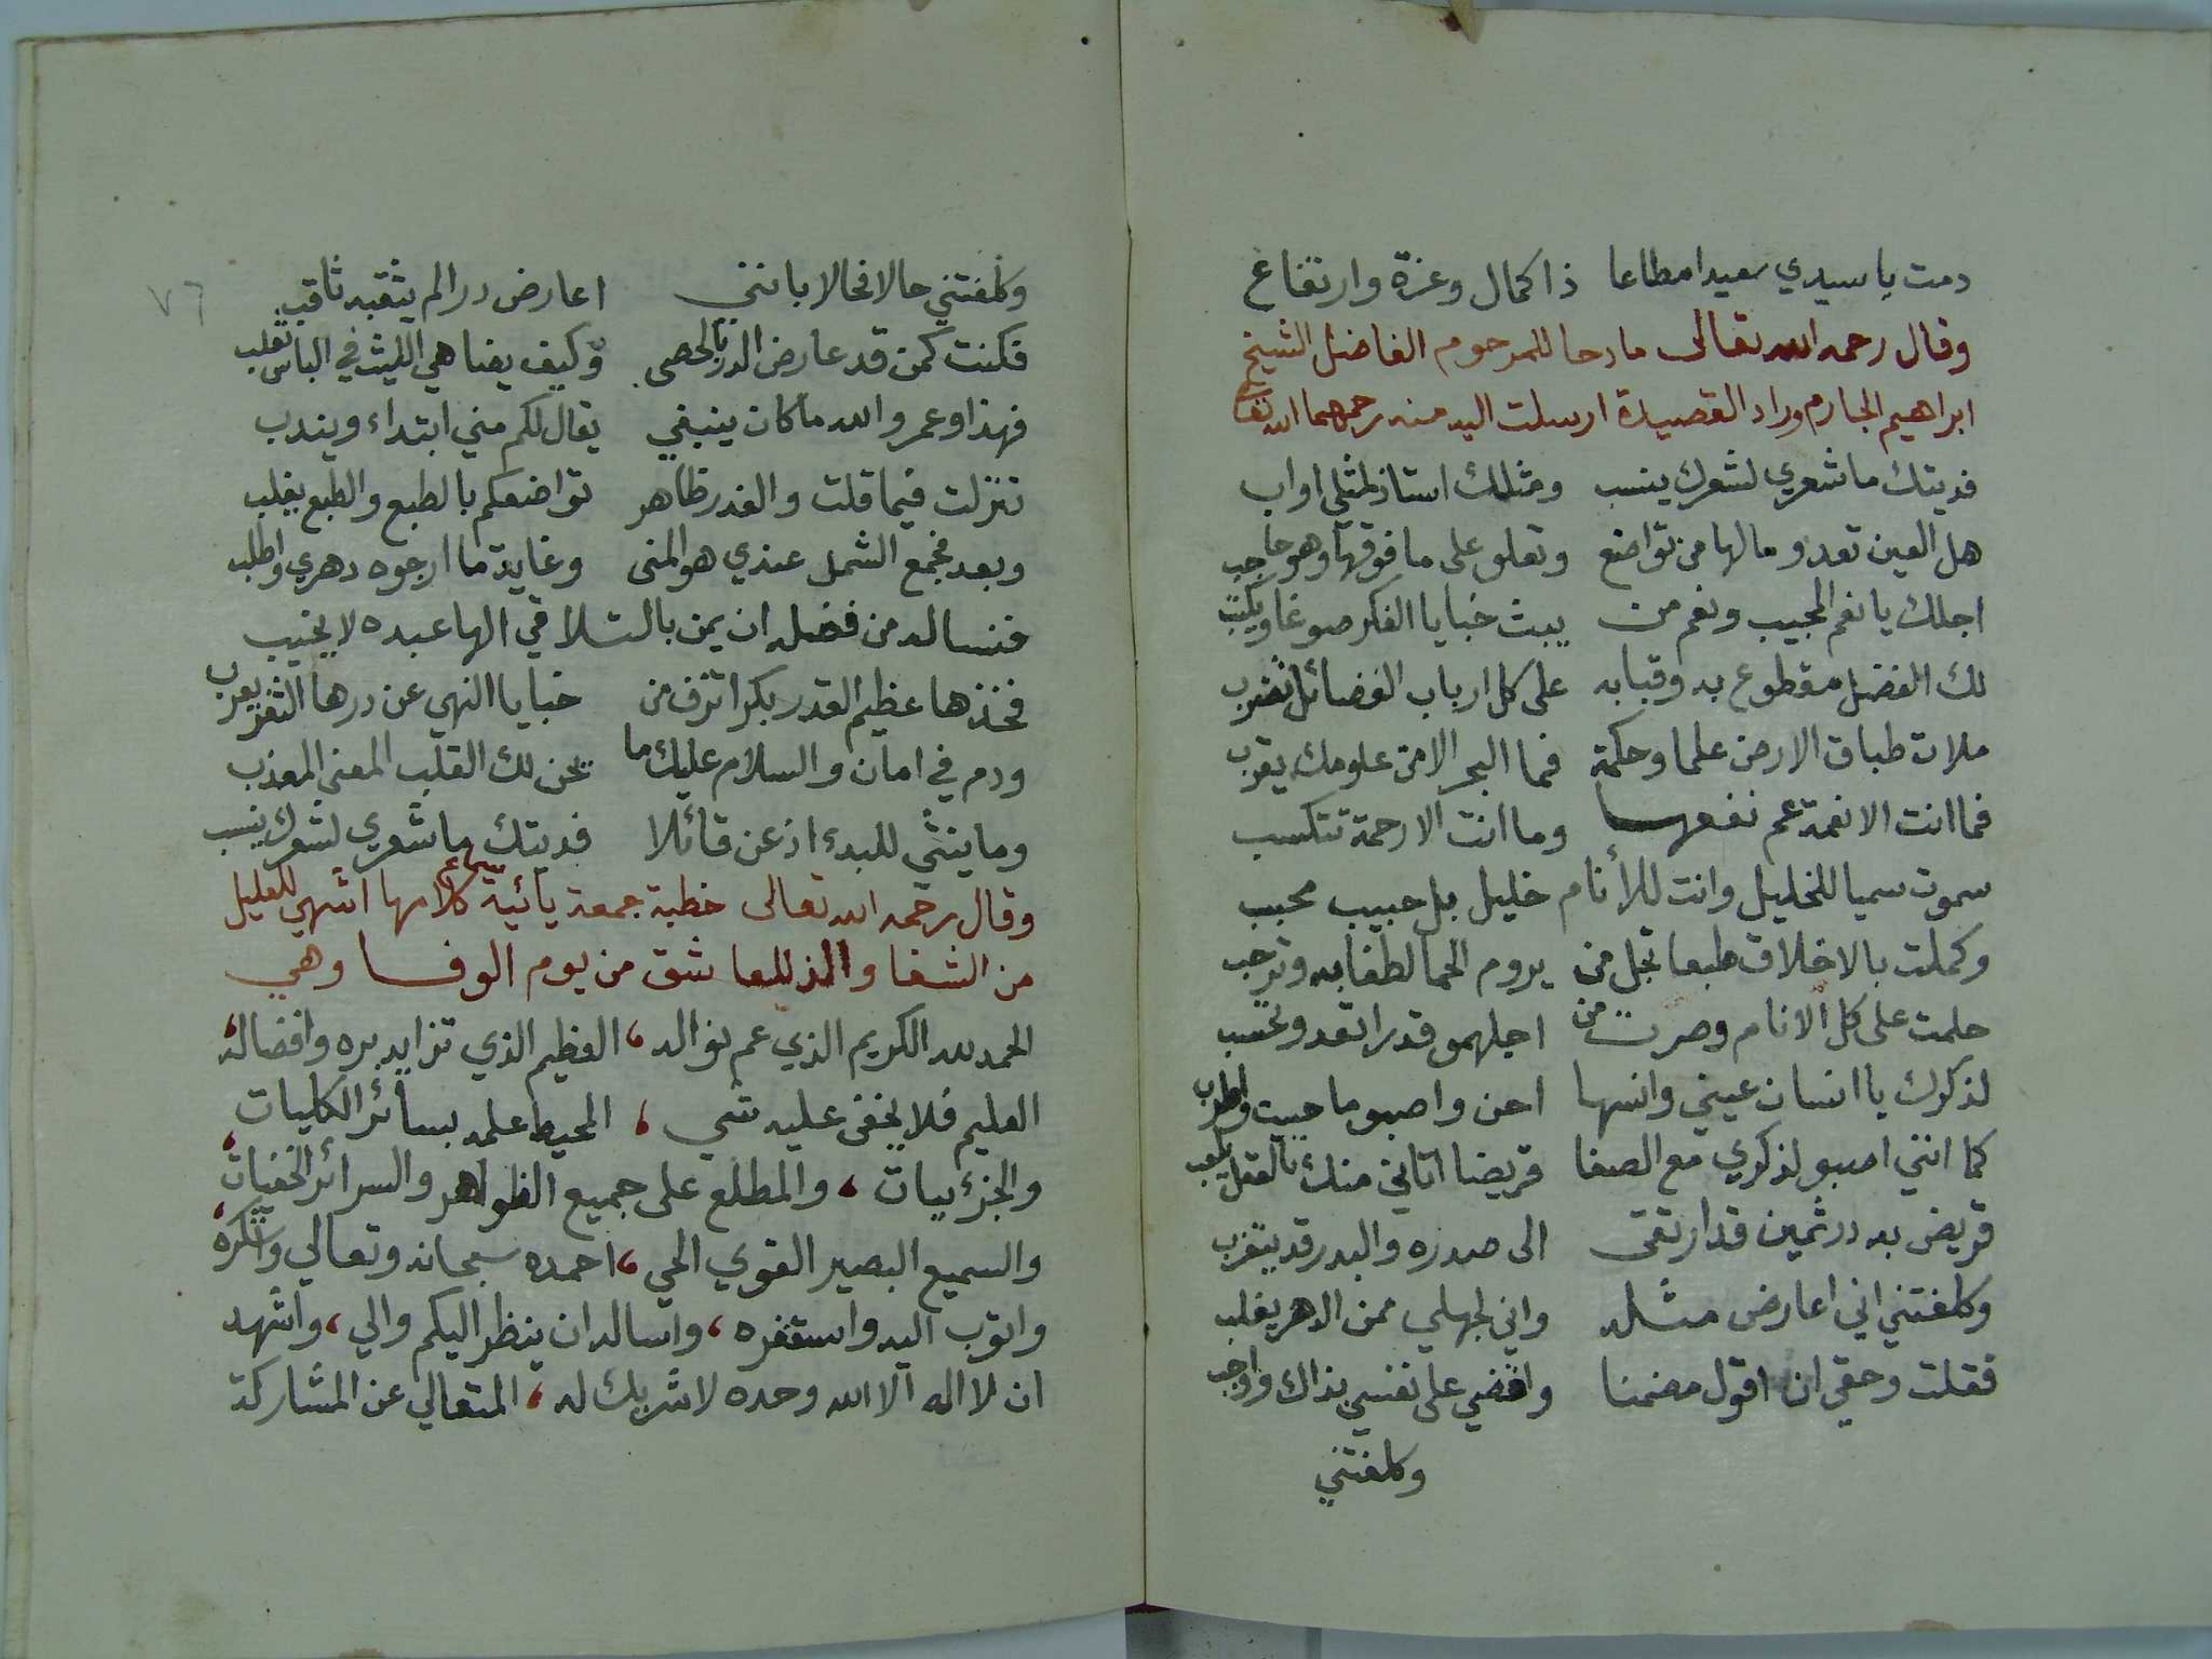 دمت يا سيدي سعيدا مطاعا ذا كمال وعزة وارتفاع
وقال رحمه الله تعالى مادحا للمرحوم الفاضل الشيخ
ابراهيم الجارم وراد القصيدة ارسلت اليه منه رحمهما الله تعالى
فديتك ما شعري لشعرك ينسب ومثلك استاذ لمثلي اواب
هل العين تعدو مالها من تواضع وتعلو على ما فوقها وهو حاجب
اجلك يا نعم المجيب ونعم من يبث خبايا الفكر صوغا ويكتب
لك الفضل مقطوع به وقبابه على كل ارباب الفضائل تضرب
ملات طباق الارض علما وحكمة فما البحر الا من علومك يقرب
فما انت الا نعمة عم نفعها وما انت الا رحمة تتكسب
سموت سميا للخليل وانت للأنام خليل بل حبيب محبب
وكملت بالاخلاق طبعا تجل من يروم الحما لطفا به وترحب
حلمت على كل الانام وصرت من اجلهمو قدرا تعد وتحسب
لذكرك يا انسان عيني وانسها احن واصبو ما حييت واطرب
كما انني اصبو لذكري مع الصفا قريضا اتاني منك بالعقل يلعب
قريض به در ثمين قد ارتقى الى صدره والبدر قد يتغرب
وكلفتني اني اعارض مثله واني لجهلي ممن الدهر يغلب
فقلت وحقي ان اقول مضمنا واقضي على نفسي بذاك واوجب
وكلفتني
٧٦
وكلفتني حالا فحالا بانني اعارض درا لم يثقبه ثاقب
فكنت كمن قد عارض الدر بالحصى وكيف يضاهي الليث في الباس ثعلب
فهذا وعمرو الله ما كان ينبغي يقال لكم مني ابتداء ويندب
تنزلت فيما قلت والعذر ظاهر تواضعكم بالطبع والطبع يغلب
وبعد فجمع الشمل عندي هو المنى وغاية ما ارجوه دهري واطلب
فنساله من فضله ان يمن بالتلاقي الها عبده لا يخيب
فخذها عظيم القدر بكرا تزف من خبايا النهي عن درها الثغر يعرب
ودم في امان والسلام عليك ما يحن لك القلب المعنى المعذب
وما ينثي للبدء اذ عن قائلا فديتك ما شعري لشعرك ينسب
وقال رحمه الله تعالى خطبة جمعة يائية كلامها اشهى للعليل
من الشفا والذ للعاشق من يوم الوفا وهي
الحمد لله الكريم الذي عم نواله، العظيم الذي تزايد بره وافضاله،
العليم فلا يخفى عليه شي، المحيط علمه بسائر الكليات
والجزئيات، والمطلع على جميع الظواهر والسرائر الخفيات،
والسميع البصير القوي الحي، احمده سبحانه وتعالي واشكره،
واتوب اليه واستغفره، واساله ان ينظر اليكم والي، واشهد
ان لا اله الا الله وحده لا شريك له، المتعالي عن المشاركة